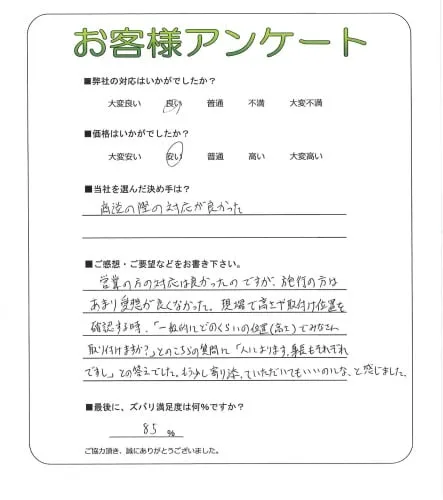 お客様アンケート
■弊社の対応はいかがでしたか?
大変良い 良い 普通 不満 大変不満
■価格はいかがでしたか?
大変安い 安い 普通 高い 大変高い
■当社を選んだ決め手は?
商談の際の対応が良かった
■ご感想・ご要望などをお書き下さい。
営業の方の対応は良かったのですが、施行の方は
あまり愛想が良くなかった。現場で高さや取付け位置を
確認する時、「一般的にどのくらいの位置(高さ)でみなさん
取り付けますか?」とのこちらの質問に「人によります、身長もそれぞれ
ですし」との答えでした。もう少し寄り添っていただいてもいいのにな、と感じました。
■最後に、ズバリ満足度は何%ですか?
85 %
ご協力頂き、誠にありがとうございました。